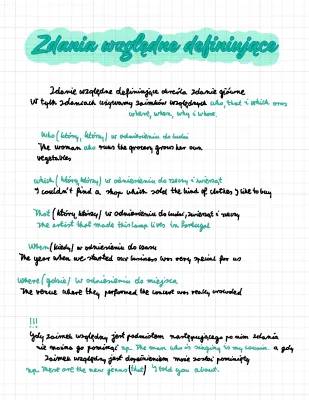 Zdania względne definiujące
Zdanie względne definiujące określa zdanie główne
W tych zdaniach używamy zaimków względnych who, that i which oraz
where, when, why i whose.
Who (który, którzy) w odniesieniu do ludzi
The woman who runs the grocery grows her own
vegetables
which (który, którzy) w odniesieniu do rzeczy i zwierząt
I couldn't find a shop which sold the kind of clothes I like to buy
That (który, którzy) w odniesieniu do ludzi, zwierząt i rzeczy
The artist that made this lamp lives in Portugal
When (kiedy) w odniesieniu do czasu
The year when we started our business was very special for us
where (gdzie) w odniesieniu do miejsca
The venue where they performed the concert was really crowded
!!!
Gdy zaimek względny jest podmiotem następującego po nim zdania
nie można go pominąć np. The man who is singing is my cousin. a gdy
zaimek względny jest dopełnieniem może zostać pominięty
np. These are the new jeans (that) I told you about.